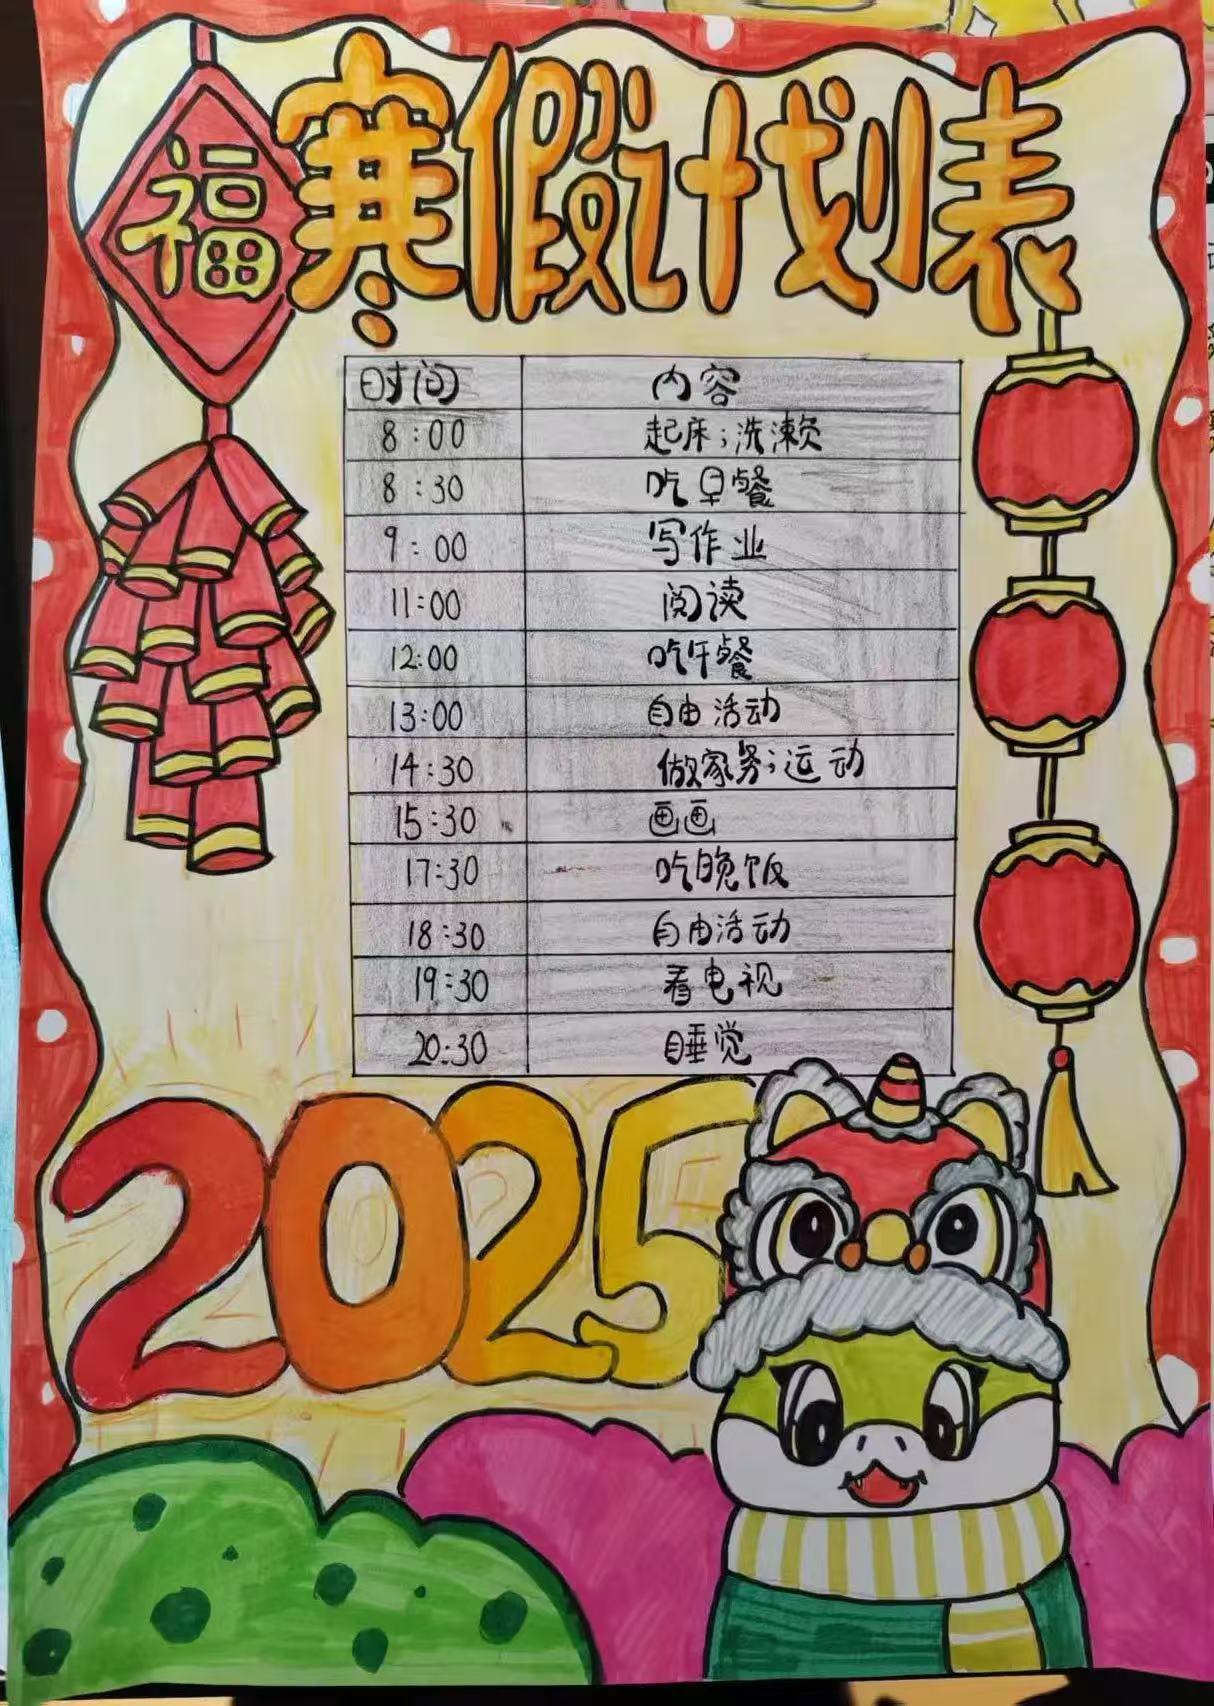 福
寒假计划表
时间 内容
8:00 起床;洗漱
8:30 吃早餐
9:00 写作业
11:00 阅读
12:00 吃午餐
13:00 自由活动
14:30 做家务;运动
15:30 画画
17:30 吃晚饭
18:30 自由活动
19:30 看电视
20:30 睡觉
2025